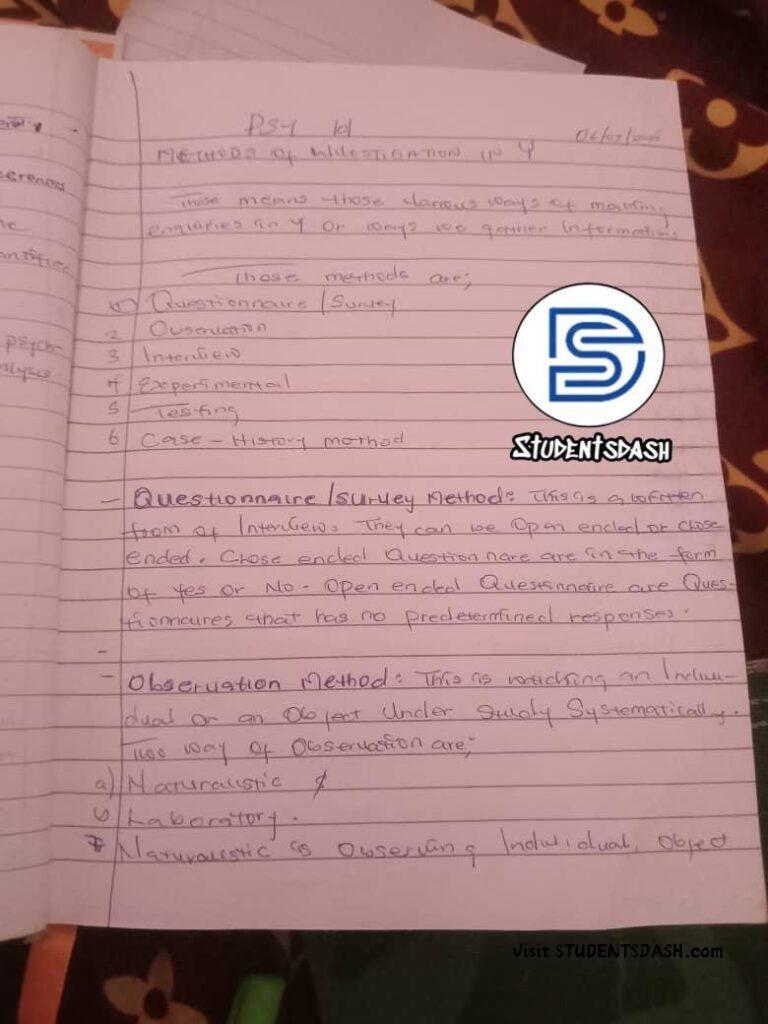 PSY 101
METHODS OF INVESTIGATION IN Y
These means those various ways of making
enquiries in Y or ways we gather information.
Those methods are;
1) Questionnaire/Survey
2 Observation
3 Interview
4 Experimental
5 Testing
6 Case-History method
- Questionnaire/survey Method: This is a written
from of Interview. They can be Open ended or close
ended. Close ended Questionnare are in the form
of Yes or No - Open ended Questionnaire are Ques-
tionnaires that has no predetermined responses.
-
- Observation Method: This is watching an Indivi-
dual or an Object Under Study Systematically.
Two way of Observation are;
a) Naturalistic &
b Laboratory.
Naturalistic is Observing Individual, Object
psych-
STUDENTSDASH
Visit STUDENTSDASH.com